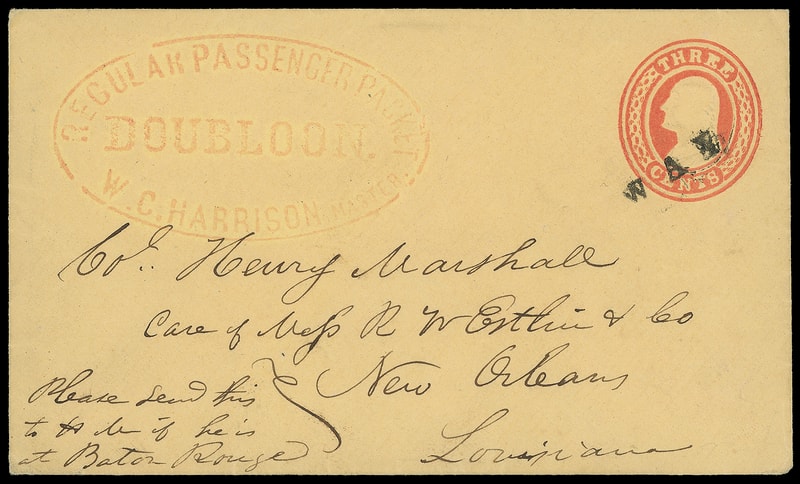 REGULAR PASSENGER PACKET
DOUBLOON.
W. C. HARRISON, MASTER.
THREE
CENTS
WAY
Col. Henry Marshall
Care of Mess R W Estlin & Co
New Orleans
Louisiana
Please send this
to H M if he is
at Baton Rouge